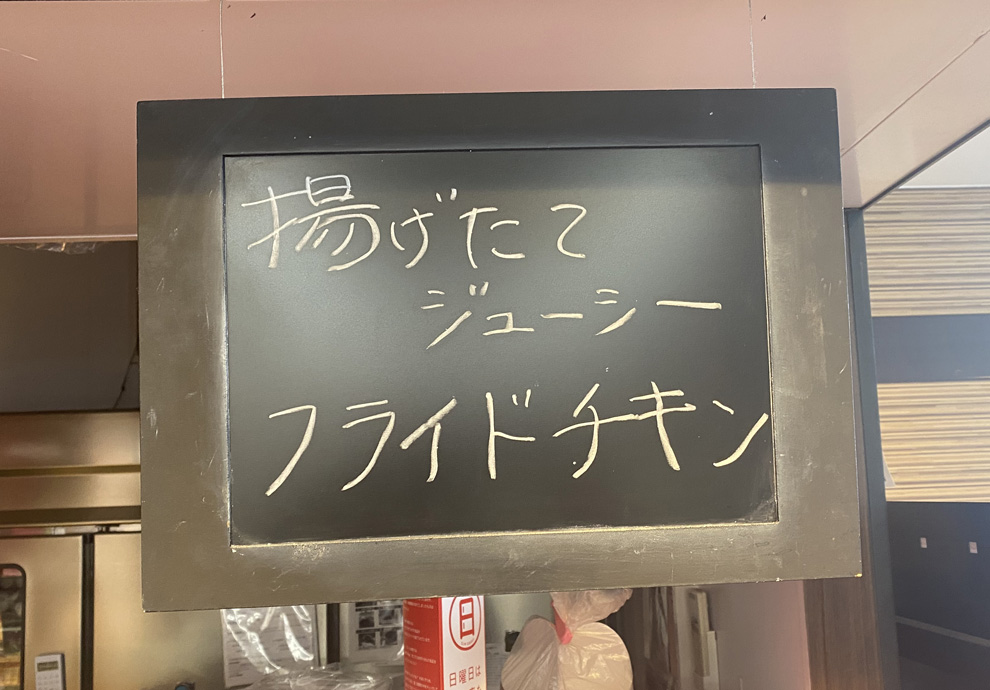 揚げたて
ジューシー
フライドチキン
日
日曜日は